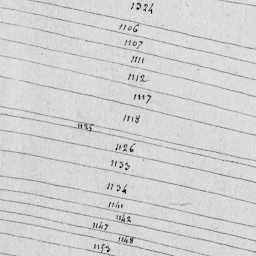 1324
1106
1107
1111
1112
1117
1118
1125
1126
1133
1134
1141
1142
1147
1148
1153